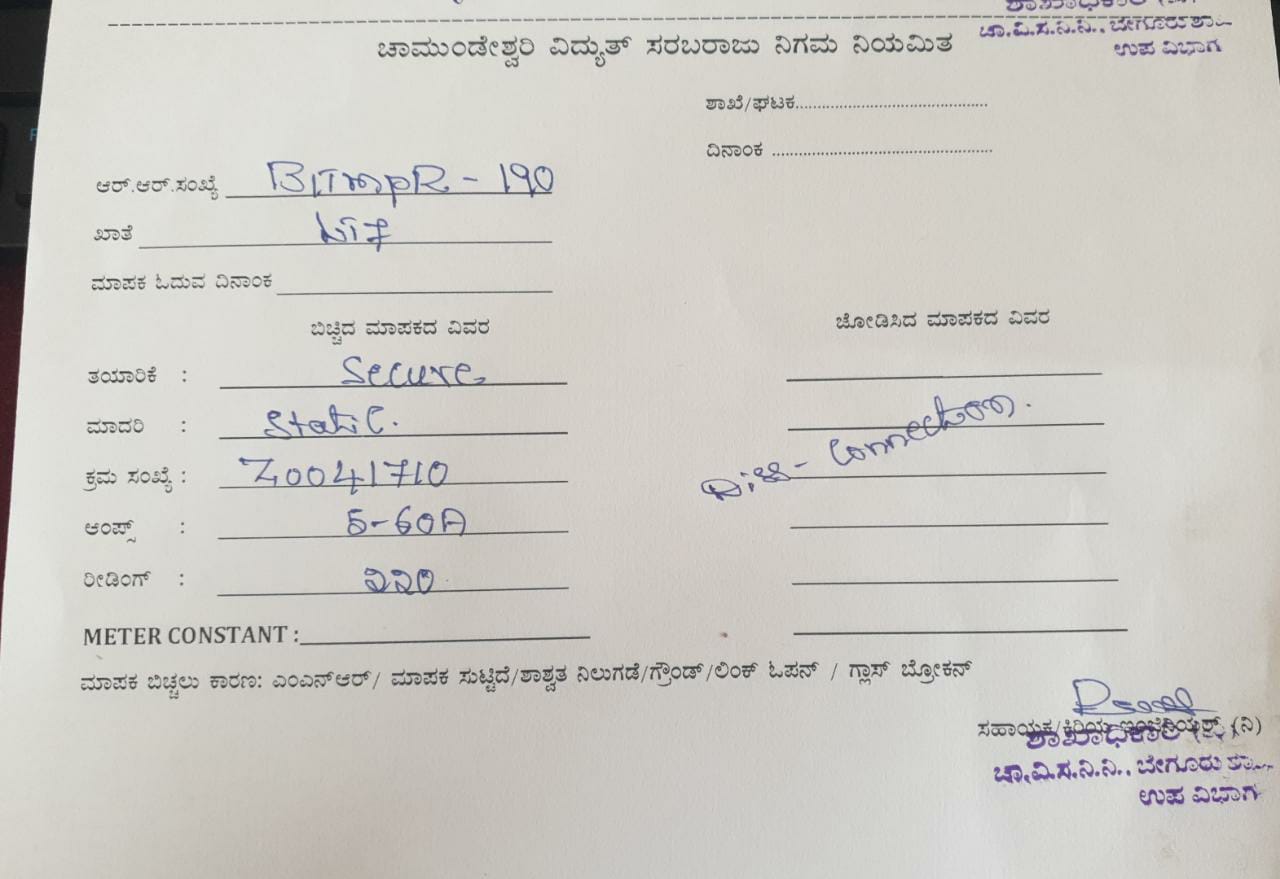 ಚಾ.ವಿ.ಸ.ನಿ.ನಿ., ಬೇಗೂರು ಶಾ
ಉಪ ವಿಭಾಗ
ಚಾಮುಂಡೇಶ್ವರಿ ವಿದ್ಯುತ್ ಸರಬರಾಜು ನಿಗಮ ನಿಯಮಿತ
ಶಾಖೆ/ಘಟಕ
ದಿನಾಂಕ
ಆರ್.ಆರ್.ಸಂಖ್ಯೆ BLTMPR - 190
ಖಾತೆ LT7
ಮಾಪಕ ಓದುವ ದಿನಾಂಕ
ಬಿಚ್ಚಿದ ಮಾಪಕದ ವಿವರ
ಜೋಡಿಸಿದ ಮಾಪಕದ ವಿವರ
ತಯಾರಿಕೆ : Secure
ಮಾದರಿ : Static.
ಕ್ರಮ ಸಂಖ್ಯೆ : Z0041710
Diss - Connection.
ಆಂಪ್ಸ್ : 5-60A
ರೀಡಿಂಗ್ : 220
METER CONSTANT :
ಮಾಪಕ ಬಿಚ್ಚಲು ಕಾರಣ: ಎಂಎನ್ಆರ್/ ಮಾಪಕ ಸುಟ್ಟಿದೆ/ಶಾಶ್ವತ ನಿಲುಗಡೆ/ಗ್ರೌಂಡ್/ಲಿಂಕ್ ಓಪನ್ / ಗ್ಲಾಸ್ ಬ್ರೋಕನ್
ಸಹಾಯಕ/ಕಿರಿಯ ಇಂಜಿನಿಯರ್ (ನಿ)
ಶಾಖಾಧಿಕಾರಿ
ಚಾ.ವಿ.ಸ.ನಿ.ನಿ., ಬೇಗೂರು ಶಾ
ಉಪ ವಿಭಾಗ